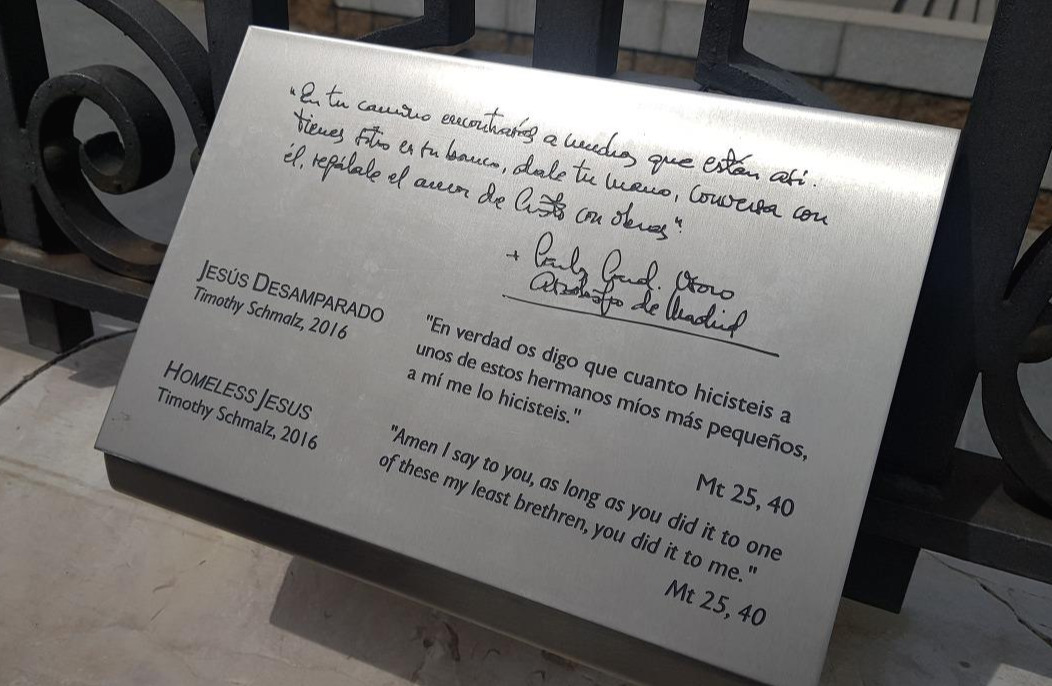 "En tu camino encontrarás a muchos que están así.
tienes sitio en tu banco, dale tu mano, conversa con
él, regálale el amor de Cristo con obras".
+ Card. Osoro
Arzobispo de Madrid
JESÚS DESAMPARADO
Timothy Schmalz, 2016
"En verdad os digo que cuanto hicisteis a
unos de estos hermanos míos más pequeños,
a mí me lo hicisteis."
Mt 25, 40
HOMELESS JESUS
Timothy Schmalz, 2016
"Amen I say to you, as long as you did it to one
of these my least brethren, you did it to me."
Mt 25, 40